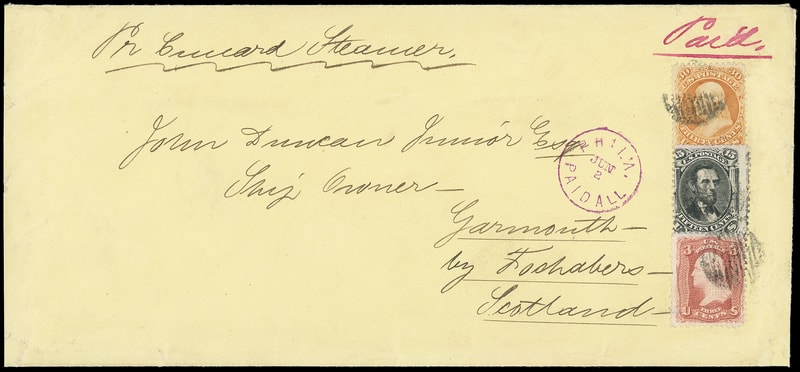 Pr Cunard Steamer.
Paid.
30 U.S. POSTAGE 30
THIRTY CENTS
John Duncan Junior Esq
Ship Owner —
PHIL'A.
JUN
2
PAID ALL
15 U.S. POSTAGE 15
FIFTEEN CENTS
Garmouth —
by Fochabers —
Scotland —
3 3
U S
THREE
CENTS